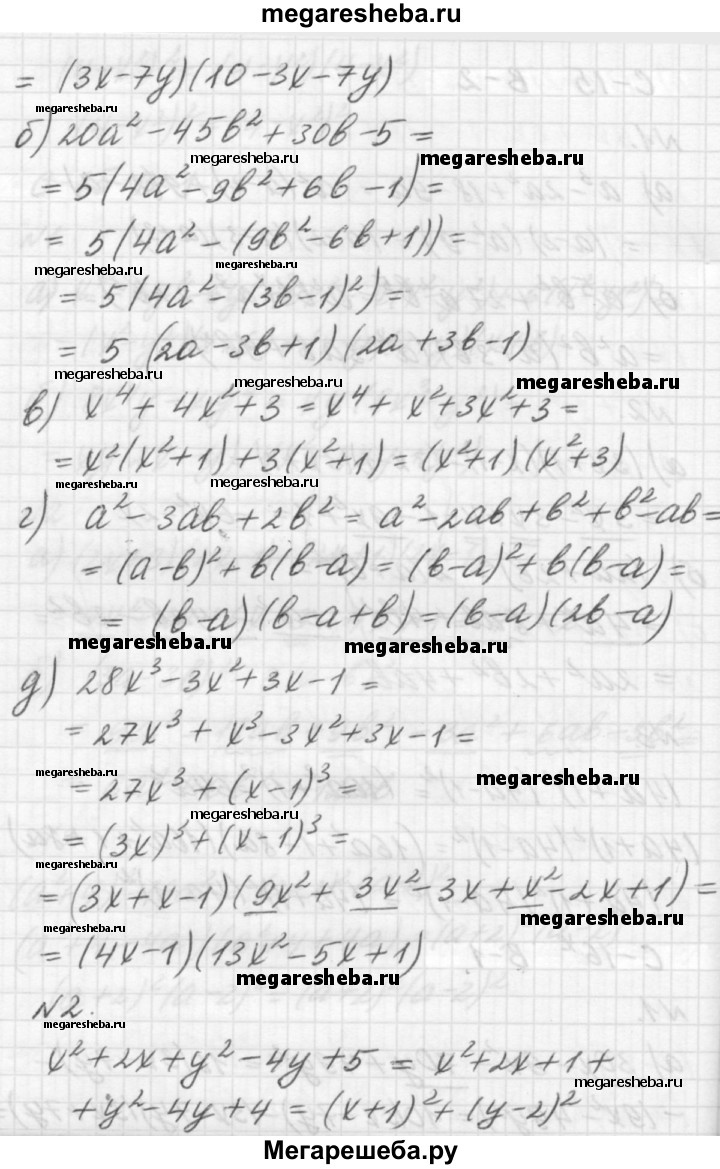 megaresheba.ru
= (3x-7y)(10-3x-7y)
megaresheba.ru
б) 20a² - 45b² + 30b - 5 =
megaresheba.ru megaresheba.ru
= 5(4a² - 9b² + 6b - 1) =
= 5(4a² - (9b² - 6b + 1)) =
megaresheba.ru megaresheba.ru
= 5(4a² - (3b-1)²) =
= 5 (2a - 3b + 1)(2a + 3b - 1)
megaresheba.ru megaresheba.ru megaresheba.ru
в) x⁴ + 4x² + 3 = x⁴ + x² + 3x² + 3 =
= x²(x²+1) + 3(x²+1) = (x²+1)(x²+3)
megaresheba.ru megaresheba.ru
г) a² - 3ab + 2b² = a² - 2ab + b² + b² - ab =
= (a-b)² + b(b-a) = (b-a)² + b(b-a) =
= (b-a)(b-a+b) = (b-a)(2b-a)
megaresheba.ru megaresheba.ru
д) 28x³ - 3x² + 3x - 1 =
= 27x³ + x³ - 3x² + 3x - 1 =
megaresheba.ru megaresheba.ru
= 27x³ + (x-1)³ =
megaresheba.ru
= (3x)³ + (x-1)³ =
megaresheba.ru
= (3x+x-1)(9x² + 3x² - 3x + x² - 2x + 1) =
megaresheba.ru megaresheba.ru
= (4x-1)(13x² - 5x + 1)
megaresheba.ru
N2.
megaresheba.ru
x² + 2x + y² - 4y + 5 = x² + 2x + 1 +
megaresheba.ru
+ y² - 4y + 4 = (x+1)² + (y-2)²
Мегарешеба.ру